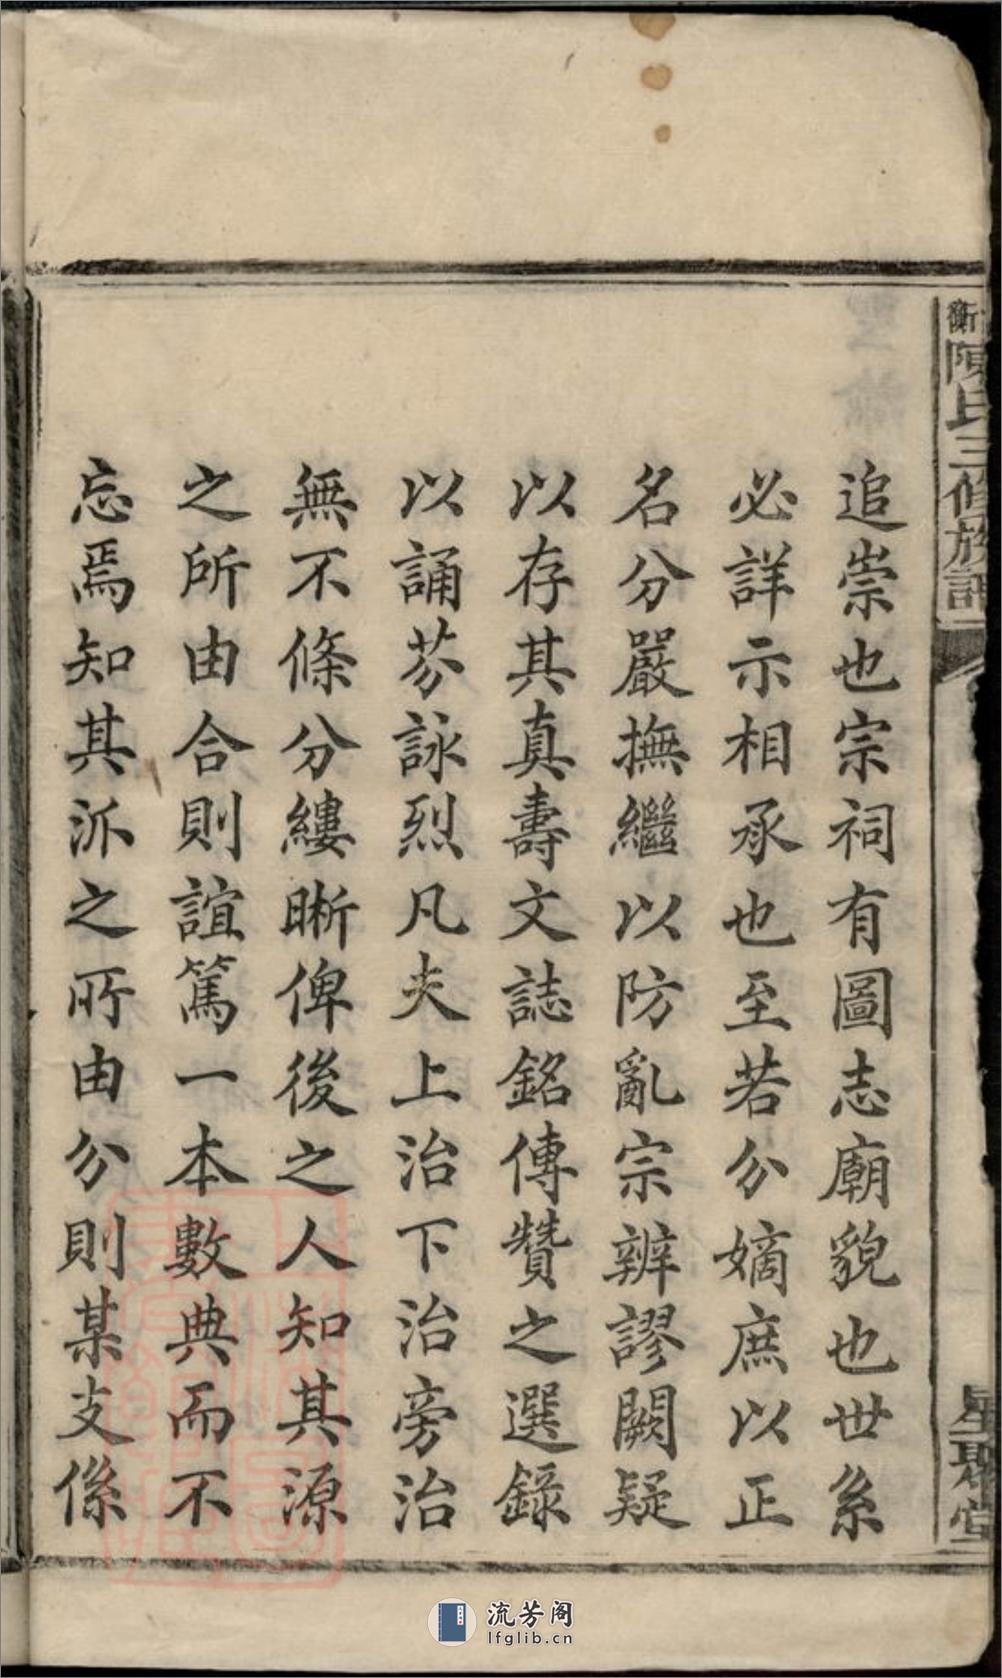 衡
陳氏三修族譜
星聚堂
追崇也宗祠有圖志廟貌也世系
必詳示相承也至若分嫡庶以正
名分嚴撫繼以防亂宗辨謬闕疑
以存其真壽文誌銘傳贊之選錄
以誦芬詠烈凡夫上治下治旁治
無不條分縷晰俾後之人知其源
之所由合則誼篤一本數典而不
忘焉知其派之所由分則某支係
流芳阁
lfglib.cn